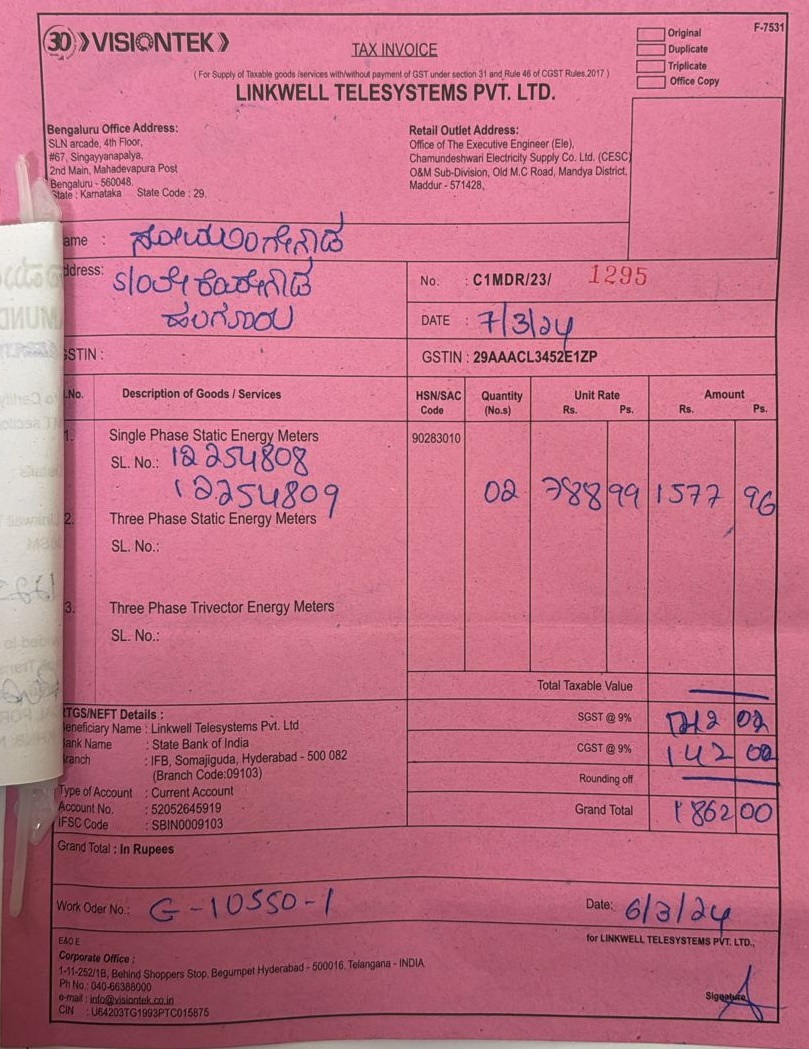 30 VISIONTEK
F-7531
TAX INVOICE
Original
Duplicate
Triplicate
Office Copy
( For Supply of Taxable goods /services with/without payment of GST under section 31 and Rule 46 of CGST Rules.2017 )
LINKWELL TELESYSTEMS PVT. LTD.
Bengaluru Office Address:
SLN arcade, 4th Floor,
#67, Singayyanapalya,
2nd Main, Mahadevapura Post
Bengaluru - 560048.
State : Karnataka State Code : 29.
Retail Outlet Address:
Office of The Executive Engineer (Ele),
Chamundeshwari Electricity Supply Co. Ltd. (CESC)
O&M Sub-Division, Old M.C Road, Mandya District,
Maddur - 571428,
ame :
ddress:
No. : C1MDR/23/ 1295
DATE : 7/3/24
STIN :
GSTIN : 29AAACL3452E1ZP
.No. Description of Goods / Services HSN/SAC Code Quantity (No.s) Unit Rate Rs. Ps. Amount Rs. Ps.
1. Single Phase Static Energy Meters 90283010
SL. No.: 12254808
12254809 02 788 99 1577 96
2. Three Phase Static Energy Meters
SL. No.:
3. Three Phase Trivector Energy Meters
SL. No.:
Total Taxable Value
SGST @ 9% 142 02
CGST @ 9% 142 02
Rounding off
Grand Total 1862 00
RTGS/NEFT Details :
eneficiary Name : Linkwell Telesystems Pvt. Ltd
ank Name : State Bank of India
ranch : IFB, Somajiguda, Hyderabad - 500 082
(Branch Code:09103)
Type of Account : Current Account
Account No. : 52052645919
IFSC Code : SBIN0009103
Grand Total : In Rupees
Work Oder No.: G-10550-1
Date: 6/3/24
E&O E
for LINKWELL TELESYSTEMS PVT. LTD.,
Corporate Office :
1-11-252/1B, Behind Shoppers Stop, Begumpet Hyderabad - 500016. Telangana - INDIA.
Ph No.: 040-66388000
e-mail : info@visiontek.co.in
CIN : U64203TG1993PTC015875
Signature